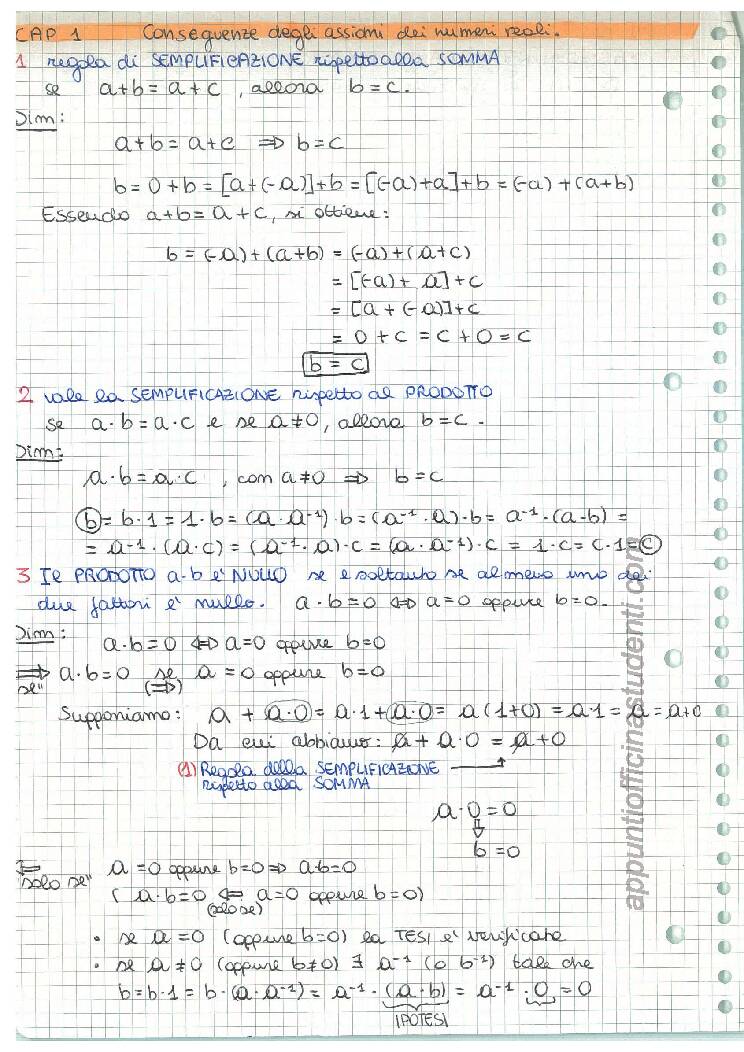 CAP 1 Conseguenze degli assiomi dei numeri reali.
1 regola di SEMPLIFICAZIONE rispetto alla SOMMA
se a+b = a+c , allora b=c.
Dim:
a+b = a+c ⇒ b=c
b = 0+b = [a+(-a)]+b = [(-a)+a]+b = (-a)+(a+b)
Essendo a+b = a+c, si ottiene:
b = (-a)+(a+b) = (-a)+(a+c)
= [(-a)+ a]+c
= [a+(-a)]+c
= 0+c = c+0 = c
b = c
2 vale la SEMPLIFICAZIONE rispetto al PRODOTTO
se a·b = a·c e se a≠0, allora b=c.
Dim:
a·b = a·c , con a≠0 ⇒ b=c
b = b·1 = 1·b = (a·a⁻¹)·b = (a⁻¹·a)·b = a⁻¹·(a·b) =
= a⁻¹·(a·c) = (a⁻¹·a)·c = (a·a⁻¹)·c = 1·c = c·1 = c
3 Il PRODOTTO a·b è NULLO se e soltanto se almeno uno dei
due fattori è nullo. a·b=0 ⇔ a=0 oppure b=0.
Dim:
a·b=0 ⇔ a=0 oppure b=0
⇒ a·b=0 se a=0 oppure b=0
se" (⇒)
Supponiamo: a + a·0 = a·1 + a·0 = a(1+0) = a·1 = a = a+0
Da cui abbiamo: a + a·0 = a+0
(1) Regola della SEMPLIFICAZIONE
rispetto alla SOMMA
a·0 = 0
⇓
b = 0
⇐ a=0 oppure b=0 ⇒ a·b=0
"solo se"
( a·b=0 ⇐ a=0 oppure b=0)
(solo se)
• se a=0 (oppure b=0) la TESI è verificata
• se a≠0 (oppure b≠0) ∃ a⁻¹ (o b⁻¹) tale che
b = b·1 = b·(a·a⁻¹) = a⁻¹·(a·b) = a⁻¹·0 = 0
IPOTESI
appuntiofficinastudenti.com